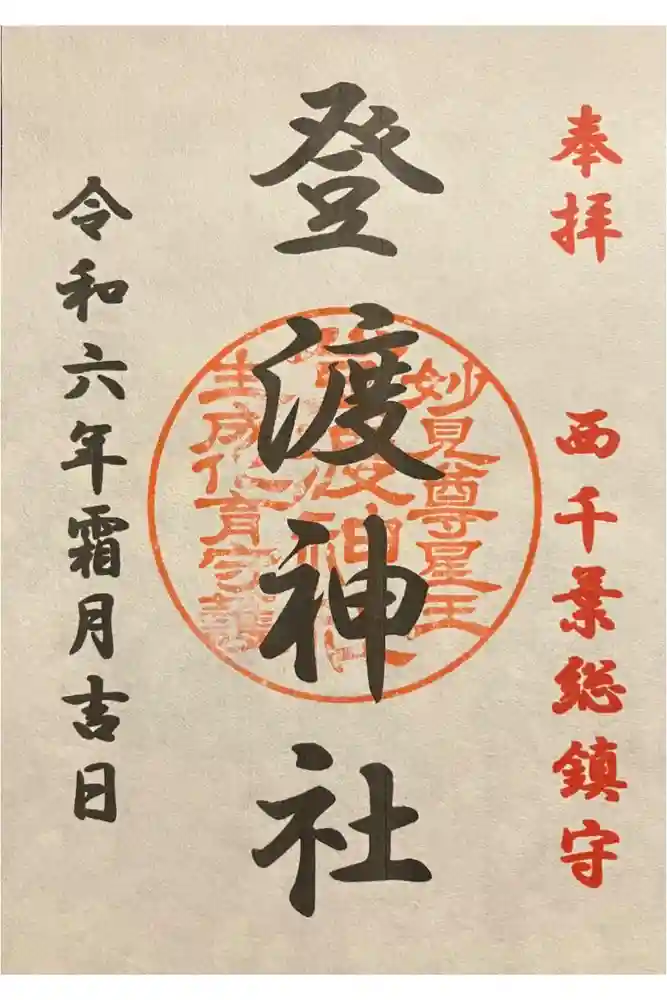 奉拝 西千葉総鎮守
登渡神社
妙見尊星王
登渡神社
生成化育守護
令和六年霜月吉日